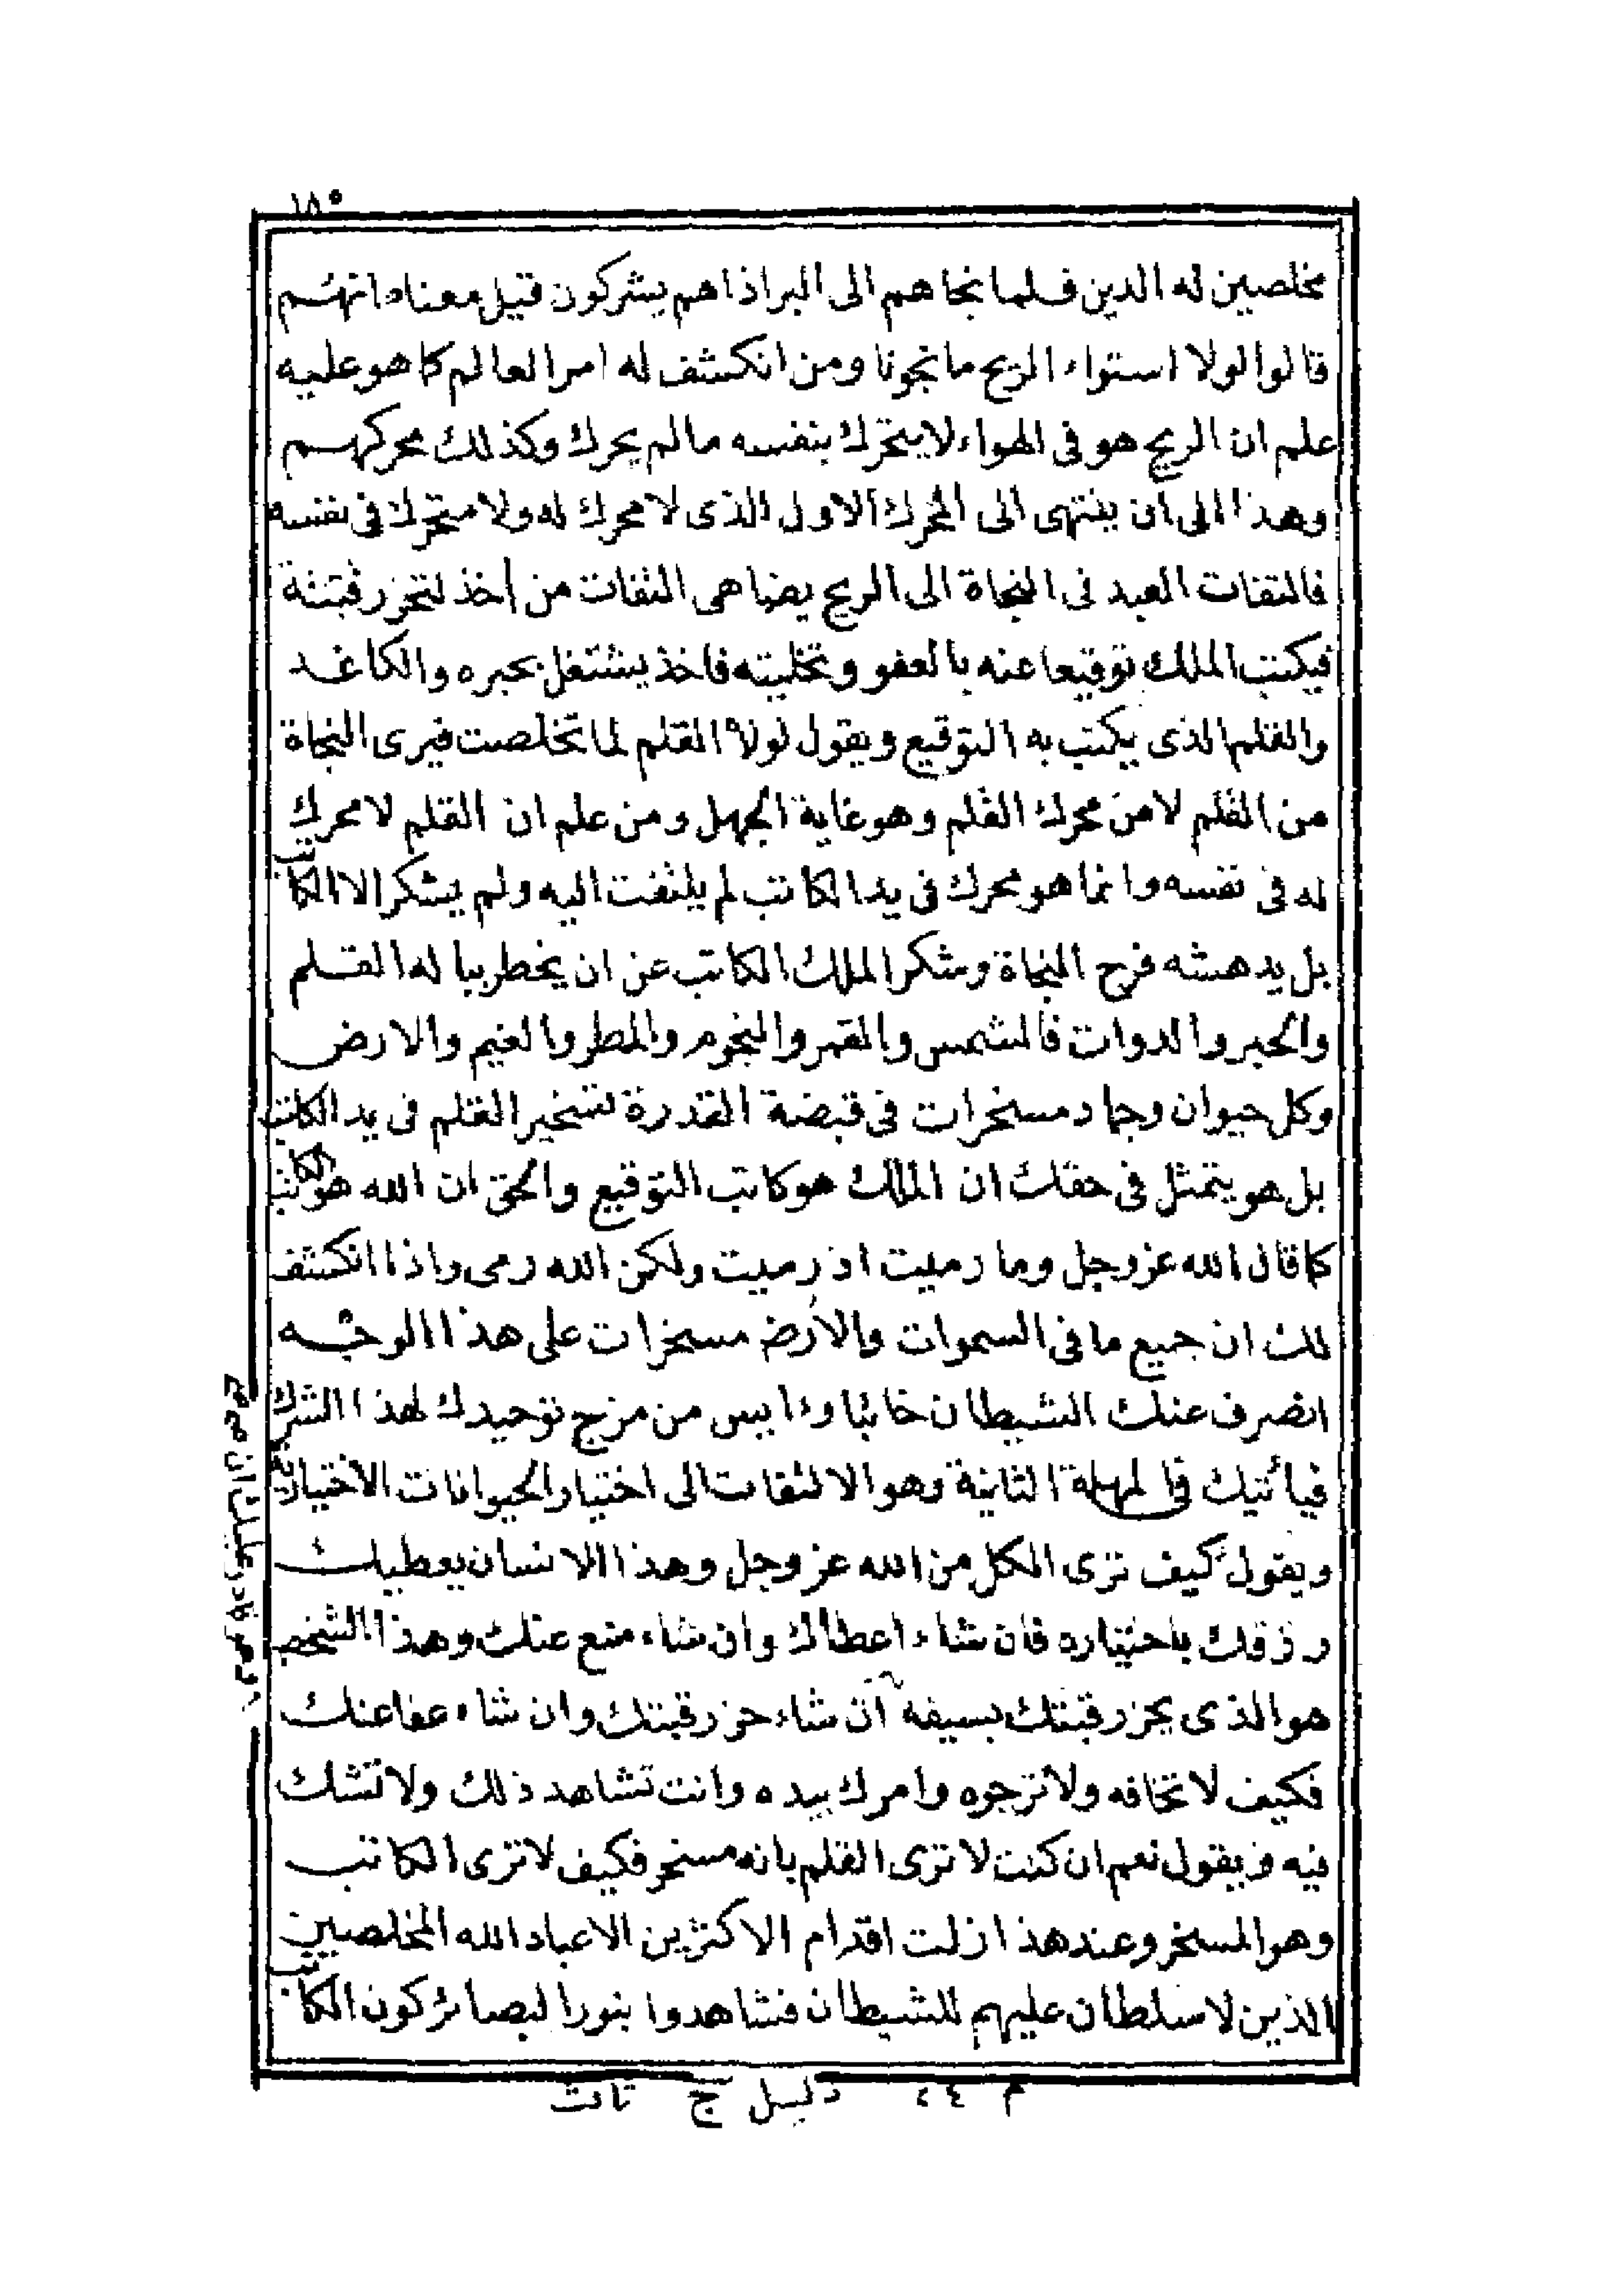 ١٨٥
مخلصين له الدين فلما نجاهم الى البر اذا هم يشركون قيل معناه انهم
قالوا لولا استواء الريح ما نجونا ومن انكشف له امر العالم كما هو عليه
علم ان الريح هو فى الهواء لا يتحرك بنفسه ما لم يحرك وكذلك محركهم
وهذا الى ان ينتهى الى المحرك الاول الذى لا محرك له ولا متحرك فى نفسه
فالتفات العبد فى النجاة الى الريح يضاهى التفات من أخذ لتحز رقبته
فيكتب الملك توقيعا عنه بالعفو وتخليته فاخذ يشتغل بحبره والكاغد
والقلم الذى يكتب به التوقيع ويقول لولا القلم لما تخلصت فيرى النجاة
من القلم لا من محرك القلم وهو غاية الجهل ومن علم ان القلم لا محرك
له فى نفسه وانما هو محرك فى يد الكاتب لم يلتفت اليه ولم يشكر الا الكاتب
بل يدهشه فرح النجاة وشكر الملك الكاتب عن ان يخطر بباله القلم
والحبر والدوات فالشمس والقمر والنجوم والمطر والغيم والارض
وكل حيوان وجماد مسخرات فى قبضة القدرة تسخير القلم فى يد الكاتب
بل هو يتمثل فى حقك ان الملك هو كاتب التوقيع والحق ان الله هو الكاتب
كما قال الله عز وجل وما رميت اذ رميت ولكن الله رمى واذا انكشف
لك ان جميع ما فى السموات والأرض مسخرات على هذا الوجه
انصرف عنك الشيطان خائبا وءايس من مزج توحيدك لهذا الشرك
فيأتيك فى المهلة الثانية وهو الالتفات الى اختيار الحيوانات الاختيارية
ويقول كيف ترى الكل من الله عز وجل وهذا الانسان يعطيك
رزقك باختياره فان شاء اعطاك وان شاء منع عنك وهذا الشخص
هو الذى يحز رقبتك بسيفه ان شاء حز رقبتك وان شاء عفا عنك
وهو قادر عليك ان صح
فكيف لا تخافه ولا ترجوه وامرك بيده وانت تشاهد ذلك ولا تشك
فيه ويقول نعم ان كنت لا ترى القلم بانه مسخر فكيف لا ترى الكاتب
وهو المسخر وعند هذا زلت اقدام الاكثرين الا عباد الله المخلصين
الذين لا سلطان عليهم للشيطان فشاهدوا بنور البصائر كون الكاتب
م ٢٤ دليل ج ثالث